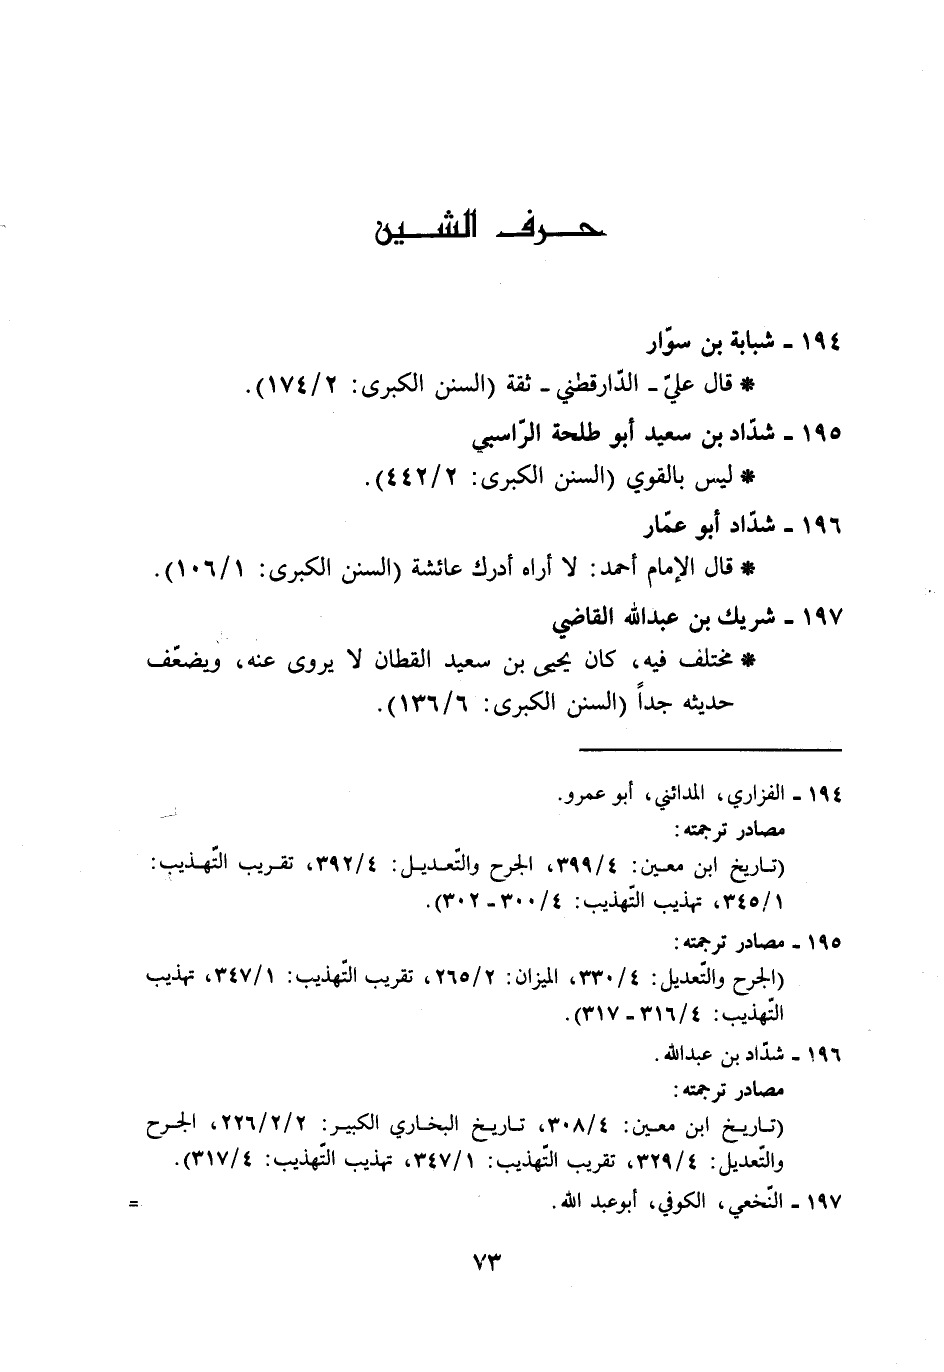 حرف الشين
١٩٤ - شبابة بن سوّار
* قال عليّ - الدّارقطني - ثقة (السنن الكبرى: ١٧٤/٢).
١٩٥ - شدّاد بن سعيد أبو طلحة الرّاسبي
* ليس بالقوي (السنن الكبرى: ٤٤٢/٢).
١٩٦ - شدّاد أبو عمّار
* قال الإمام أحمد: لا أراه أدرك عائشة (السنن الكبرى: ١٠٦/١).
١٩٧ - شريك بن عبدالله القاضي
* مختلف فيه، كان يحيى بن سعيد القطان لا يروى عنه، ويضعّف
حديثه جداً (السنن الكبرى: ١٣٦/٦).
١٩٤ - الفزاري، المدائني، أبو عمرو.
مصادر ترجمته:
(تاريخ ابن معين: ٣٩٩/٤، الجرح والتّعديل: ٣٩٢/٤، تقريب التّهذيب:
٣٤٥/١، تهذيب التّهذيب: ٣٠٠/٤ - ٣٠٢).
١٩٥ - مصادر ترجمته:
(الجرح والتّعديل: ٣٣٠/٤، الميزان: ٢٦٥/٢، تقريب التّهذيب: ٣٤٧/١، تهذيب
التّهذيب: ٣١٦/٤ - ٣١٧).
١٩٦ - شدّاد بن عبدالله.
مصادر ترجمته:
(تاريخ ابن معين: ٣٠٨/٤، تاريخ البخاري الكبير: ٢٢٦/٢/٢، الجرح
والتّعديل: ٣٢٩/٤، تقريب التّهذيب: ٣٤٧/١، تهذيب التّهذيب: ٣١٧/٤).
١٩٧ - النّخعي، الكوفي، أبوعبد الله. =
٧٣